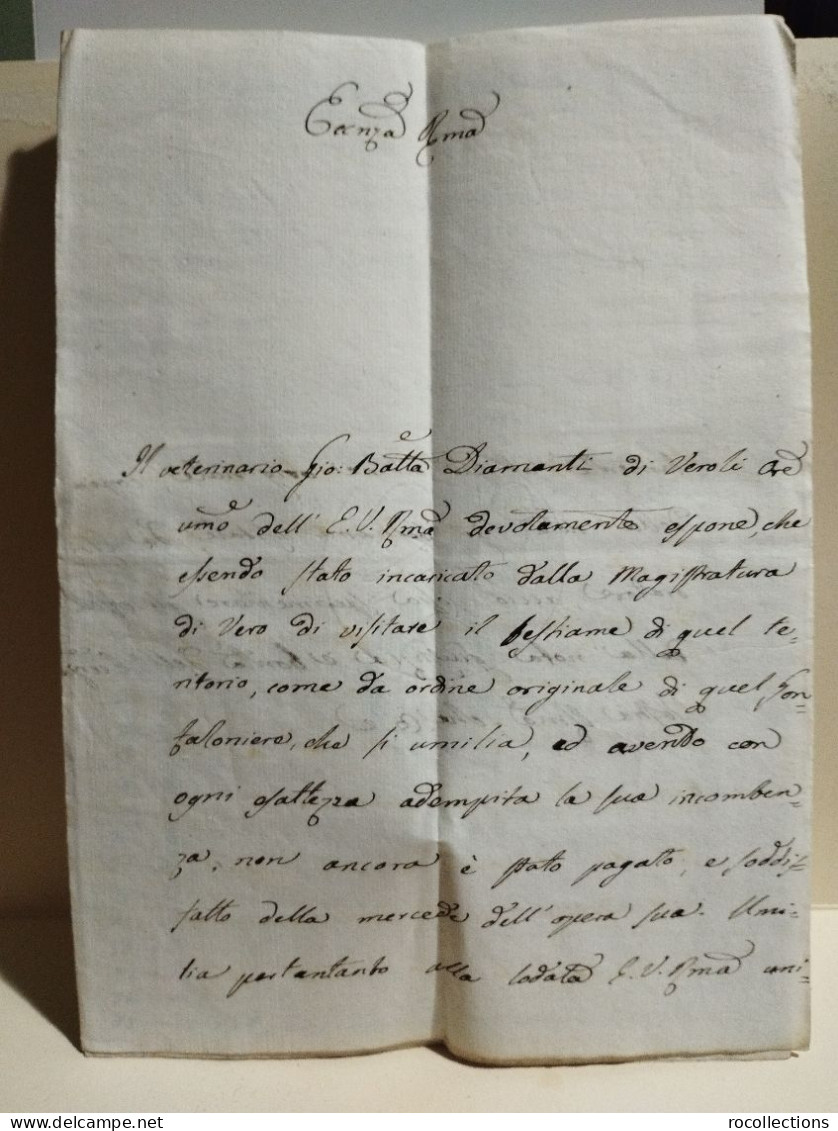 Eccnza Rma
Il veterinario Gio: Batta Diamanti di Veroli Ore
umo dell' E. V. Rma devotamente espone, che
essendo stato incaricato dalla Magistratura
di Vero di visitare il bestiame di quel te-
ritorio, come da ordine originale di quel Gon-
faloniere, che si umilia, ed avendo con
ogni esattezza adempita la sua incomben-
za, non ancora è stato pagato, e soddis-
fatto della mercede dell' opera sua. Umi-
lia pertantanto alla lodata E. V. Rma uni-
www.delcampe.net
rocollections